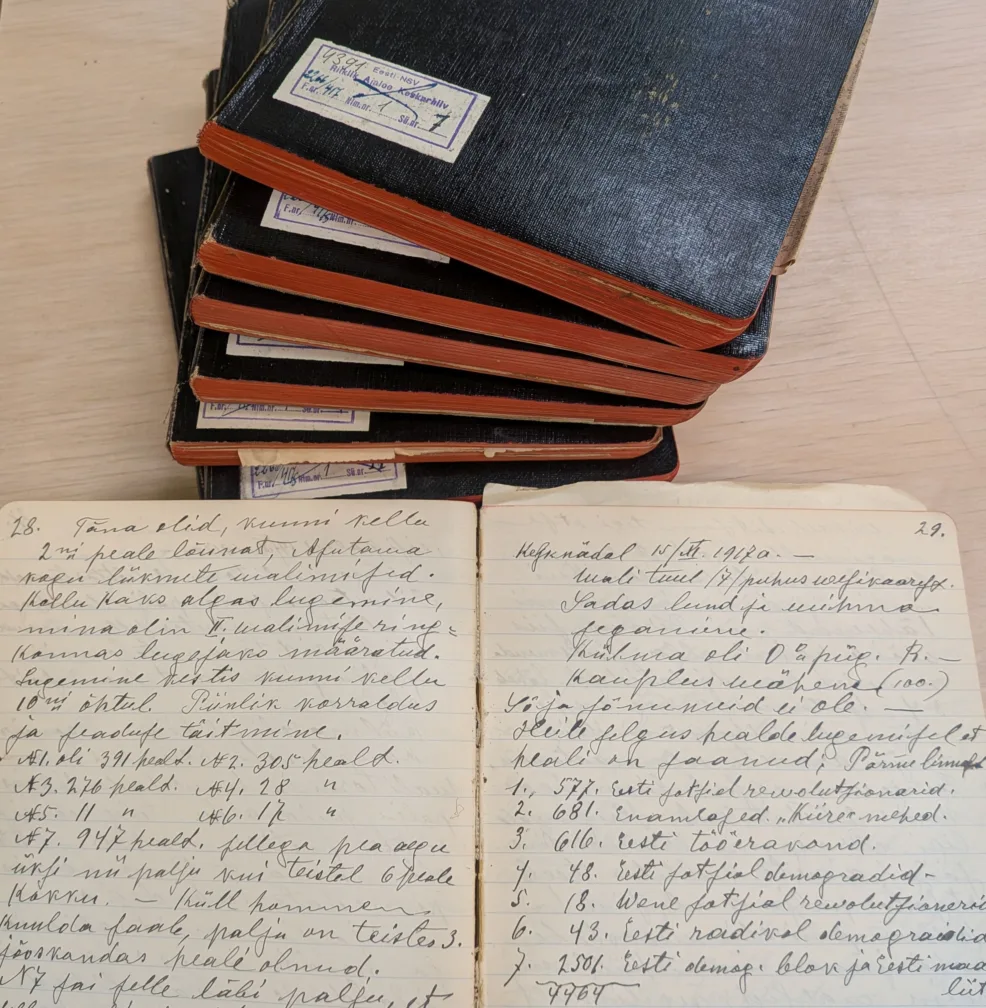 4391
Eesti NSV
Riiklik Ajaloo Keskarhiiv
F.nr. Nim.nr. 1 Sü.nr. 7
F.nr. Nim.nr.
F.nr. Nim.nr. 1 Sü.nr.
F.nr. Nim.nr. 1 Sü.nr.
28. Täna olid, kunni kellu
2ni peale lõunat, Asutawa
kogu liikmete walimised.
Kellu kaks algas lugemine,
mina olin II. walimise ring=
konnas lugejaks määratud.
Lugemine kestis kunni kellu
10ni õhtul. Piinlik korraldus
ja seaduse täitmine.
N1. oli 391 pealt. N2. 305 pealt.
N3. 276 pealt. N4. 28 "
N5. 11 " N6. 17 "
N7. 947 pealt. sellega pea aegu
üksi nii palju kui teistel 6 peale
kokku. — Küll hommen
kuulda saab, palju on teistes 3.
jooskondas peali olnud.
N7 sai selle läbi palju, et
29.
Kesknädal 15/XI. 1917 a. —
Wali tuul /7/ puhus
Sadas lund ja wihma
segamine.
Külma oli 0° R. —
Kauplus wähene (100.)
Sõja sõnumeid ei ole. —
Heile selgus pealde lugemisel et
peali on saanud; Pärnu linnast
1., 577. Eesti sotsial rewolutsionarid.
2. 681. Enamlased. „Kiire" mehed.
3. 616. Eesti tööerakond.
4. 48. Eesti sotsial demogradid -
5. 18. Wene sotsial rewolutsionerid
6. 43. Eesti radikal demograadid
7. 2501. Eesti demog. blok ja Eesti maa
liit
4464